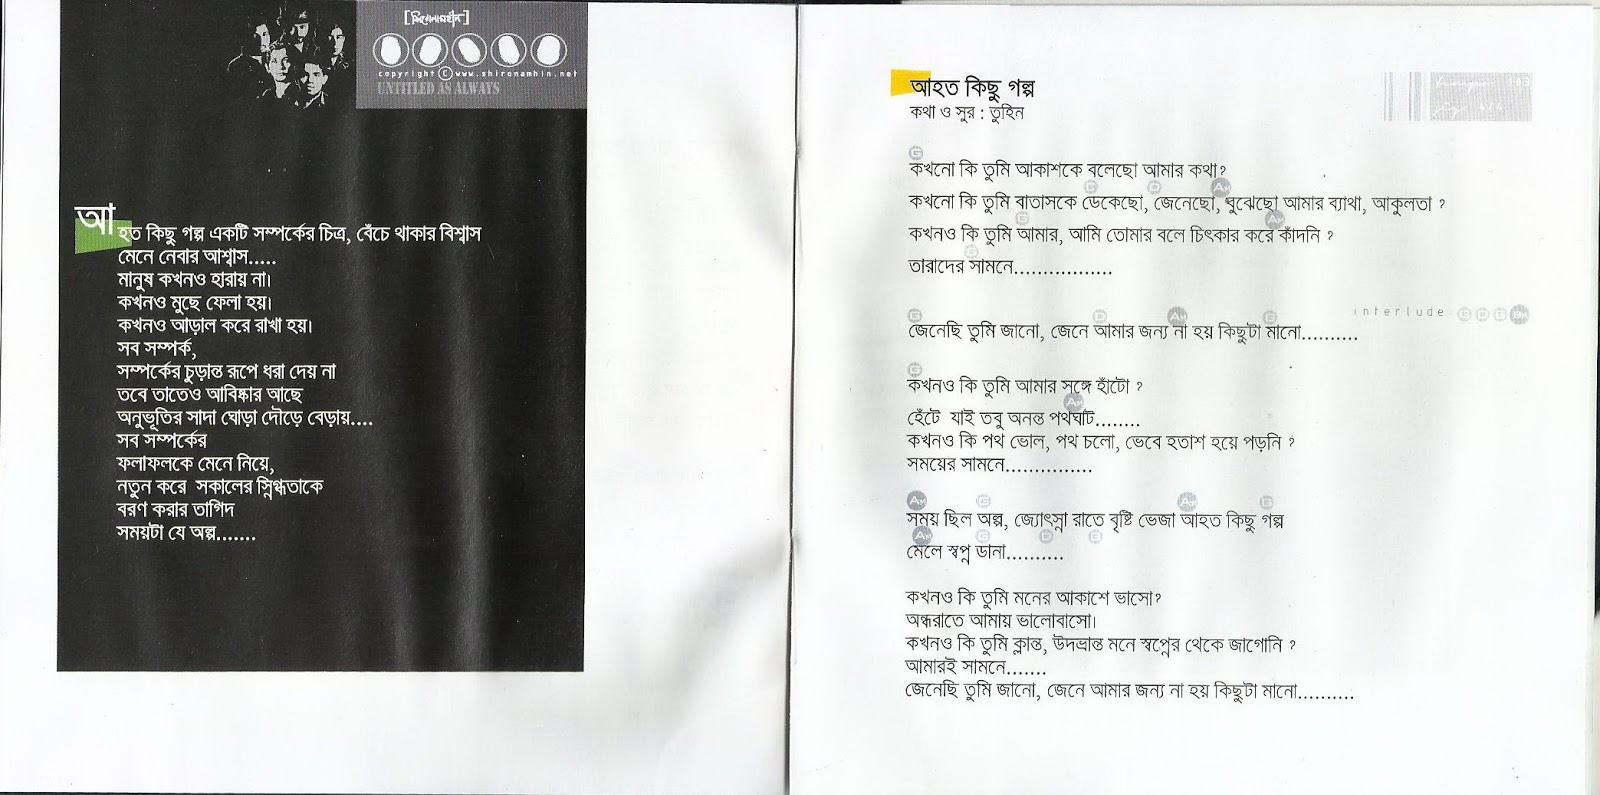 [শিরোনামহীন]
copyright © www.shironamhin.net
UNTITLED AS ALWAYS
আহত কিছু গল্প একটি সম্পর্কের চিত্র, বেঁচে থাকার বিশ্বাস
মেনে নেবার আশ্বাস.....
মানুষ কখনও হারায় না।
কখনও মুছে ফেলা হয়।
কখনও আড়াল করে রাখা হয়।
সব সম্পর্ক,
সম্পর্কের চুড়ান্ত রূপে ধরা দেয় না
তবে তাতেও আবিষ্কার আছে
অনুভূতির সাদা ঘোড়া দৌড়ে বেড়ায়....
সব সম্পর্কের
ফলাফলকে মেনে নিয়ে,
নতুন করে সকালের স্নিগ্ধতাকে
বরণ করার তাগিদ
সময়টা যে অল্প.......
আহত কিছু গল্প
কথা ও সুর : তুহিন
G
কখনো কি তুমি আকাশকে বলেছো আমার কথা?
C D Am
কখনো কি তুমি বাতাসকে ডেকেছো, জেনেছো, বুঝেছো আমার ব্যাথা, আকুলতা ?
G Am
কখনও কি তুমি আমার, আমি তোমার বলে চিৎকার করে কাঁদনি ?
G
তারাদের সামনে.................
interlude G D B Bm
G D Am G
জেনেছি তুমি জানো, জেনে আমার জন্য না হয় কিছুটা মানো..........
G
কখনও কি তুমি আমার সঙ্গে হাঁটো ?
Am
হেঁটে যাই তবু অনন্ত পথঘাট........
কখনও কি পথ ভোল, পথ চলো, ভেবে হতাশ হয়ে পড়নি ?
সময়ের সামনে...............
Am G Am G
সময় ছিল অল্প, জ্যোৎস্না রাতে বৃষ্টি ভেজা আহত কিছু গল্প
Am G D G
মেলে স্বপ্ন ডানা..........
কখনও কি তুমি মনের আকাশে ভাসো?
অন্ধরাতে আমায় ভালোবাসো।
কখনও কি তুমি ক্লান্ত, উদভ্রান্ত মনে স্বপ্নের থেকে জাগোনি ?
আমারই সামনে.......
জেনেছি তুমি জানো, জেনে আমার জন্য না হয় কিছুটা মানো..........